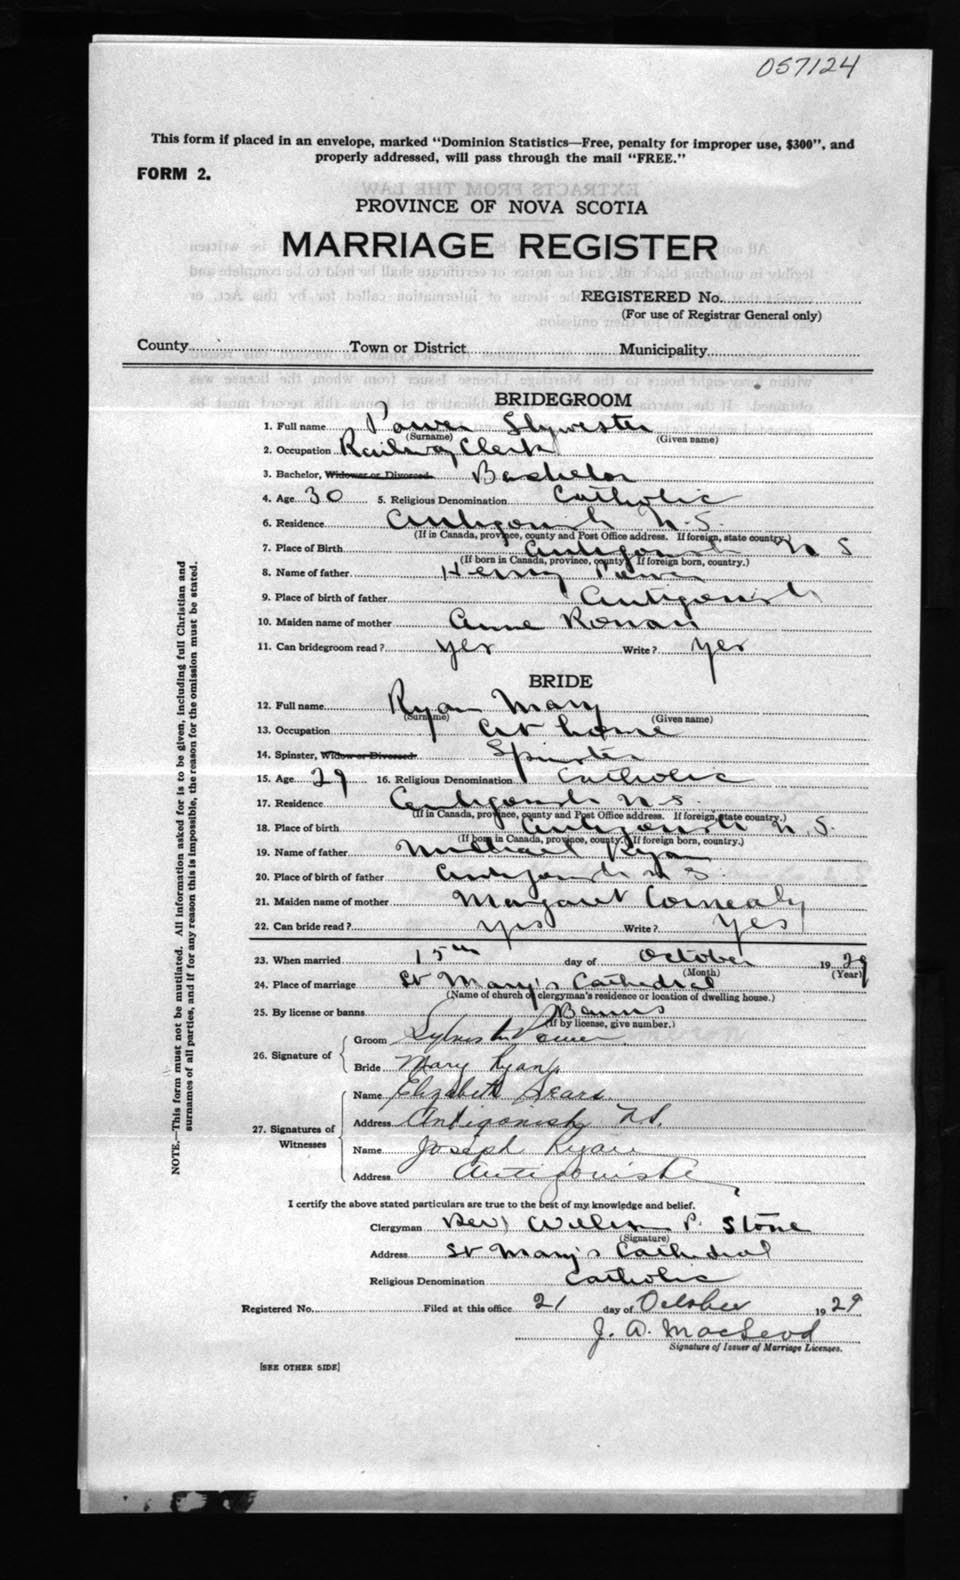 057124
This form if placed in an envelope, marked "Dominion Statistics—Free, penalty for improper use, $300", and
properly addressed, will pass through the mail "FREE."
FORM 2.
PROVINCE OF NOVA SCOTIA
MARRIAGE REGISTER
REGISTERED No.
(For use of Registrar General only)
County Town or District Municipality
BRIDEGROOM
1. Full name Power Slyvester
(Surname) (Given name)
2. Occupation Railway Clerk
3. Bachelor, Widower or Divorced. Bachelor
4. Age 30 5. Religious Denomination Catholic
6. Residence Antigonish N.S.
(If in Canada, province, county and Post Office address. If foreign, state country.)
7. Place of Birth Antigonish N S
(If born in Canada, province, county. If foreign born, country.)
8. Name of father Henry Power
9. Place of birth of father Antigonish
10. Maiden name of mother Anne Ronan
11. Can bridegroom read? yes Write? yes
BRIDE
12. Full name Ryan Mary
(Surname) (Given name)
13. Occupation At home
14. Spinster, Widow or Divorced. Spinster
15. Age 29 16. Religious Denomination Catholic
17. Residence Antigonish N.S.
(If in Canada, province, county and Post Office address. If foreign, state country.)
18. Place of birth Antigonish N.S.
(If born in Canada, province, county. If foreign born, country.)
19. Name of father Michael Ryan
20. Place of birth of father Antigonish N S
21. Maiden name of mother Margaret
22. Can bride read? yes Write? yes
23. When married 15th day of October 1929
(Month) (Year)
24. Place of marriage St Mary's Cathedral
(Name of church or clergyman's residence or location of dwelling house.)
25. By license or banns Banns
(If by license, give number.)
26. Signature of
Groom Sylvester Power
Bride Mary Ryan
27. Signatures of Witnesses
Name Elizabeth Sears
Address Antigonish N.S.
Name Joseph Ryan
Address Antigonish
I certify the above stated particulars are true to the best of my knowledge and belief.
Clergyman Rev William P. Stone
(Signature)
Address St Mary's Cathedral
Religious Denomination Catholic
Registered No. Filed at this office 21 day of October 1929
J. A. MacLeod
Signature of Issuer of Marriage Licenses.
[SEE OTHER SIDE]
NOTE.—This form must not be mutilated. All information asked for is to be given, including full Christian and
surnames of all parties, and if for any reason this is impossible, the reason for the omission must be stated.